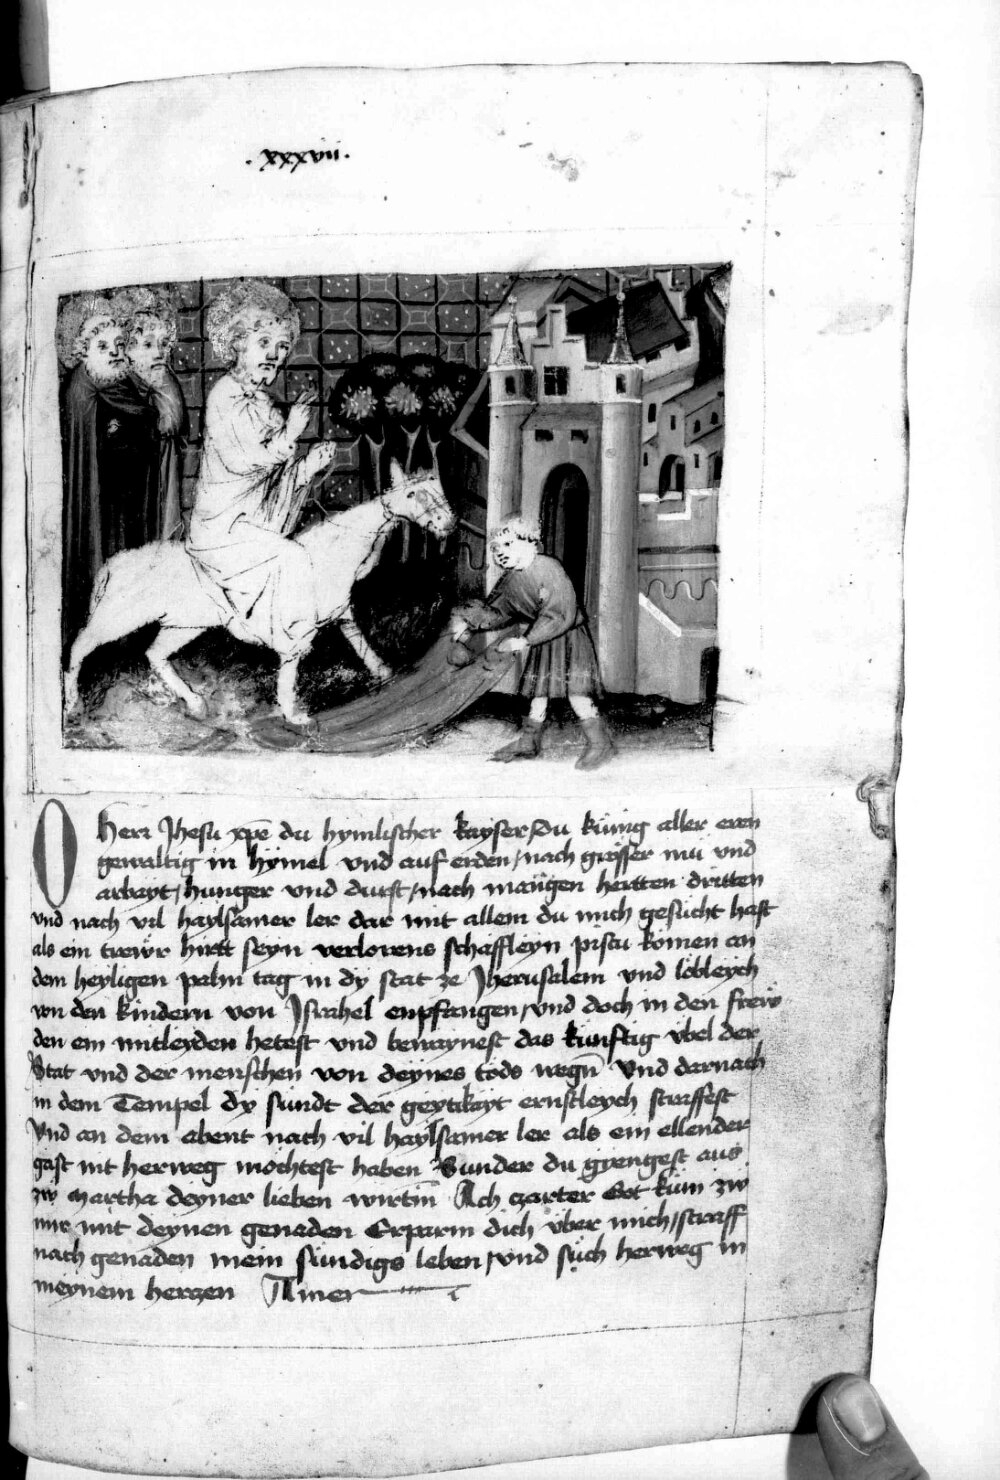 . xxxvii .
O herr Jhesu xpe du hymlischer kayser / Du künig aller eren
gewaltig in hymel vnd auf erden / nach grosser mü vnd
arbayt / hunger vnd durst / nach mangen hertten dritten
vnd nach vil haylsamer ler dar mit allem du mich gesücht hast
als ein trewr hirtt seyn verlorens schaffleyn pistu komen an
dem heyligen palm tag in dy stat ze Jherusalem vnd lobleych
von den kindern von Jsrahel enpfangen / vnd doch in den frew
den ein mitleyden hetest vnd bewaynest das künftig übel der
Stat vnd der menschen von deynes tods wegn Vnd darnach
in dem Tempel dy sündt der geytikayt ernstleych straffest
Vnd an dem abent nach vil haylsamer ler als ein ellender
gast nit herweg mochtest haben Sunder du giengest aus
zw Martha deyner lieben wirtin Ach czarter Got küm zw
mir mit deynen genaden Erparm dich über mich / straff
nach genaden mein sündigs leben / vnd süch herweg in
meynem herczen Amen